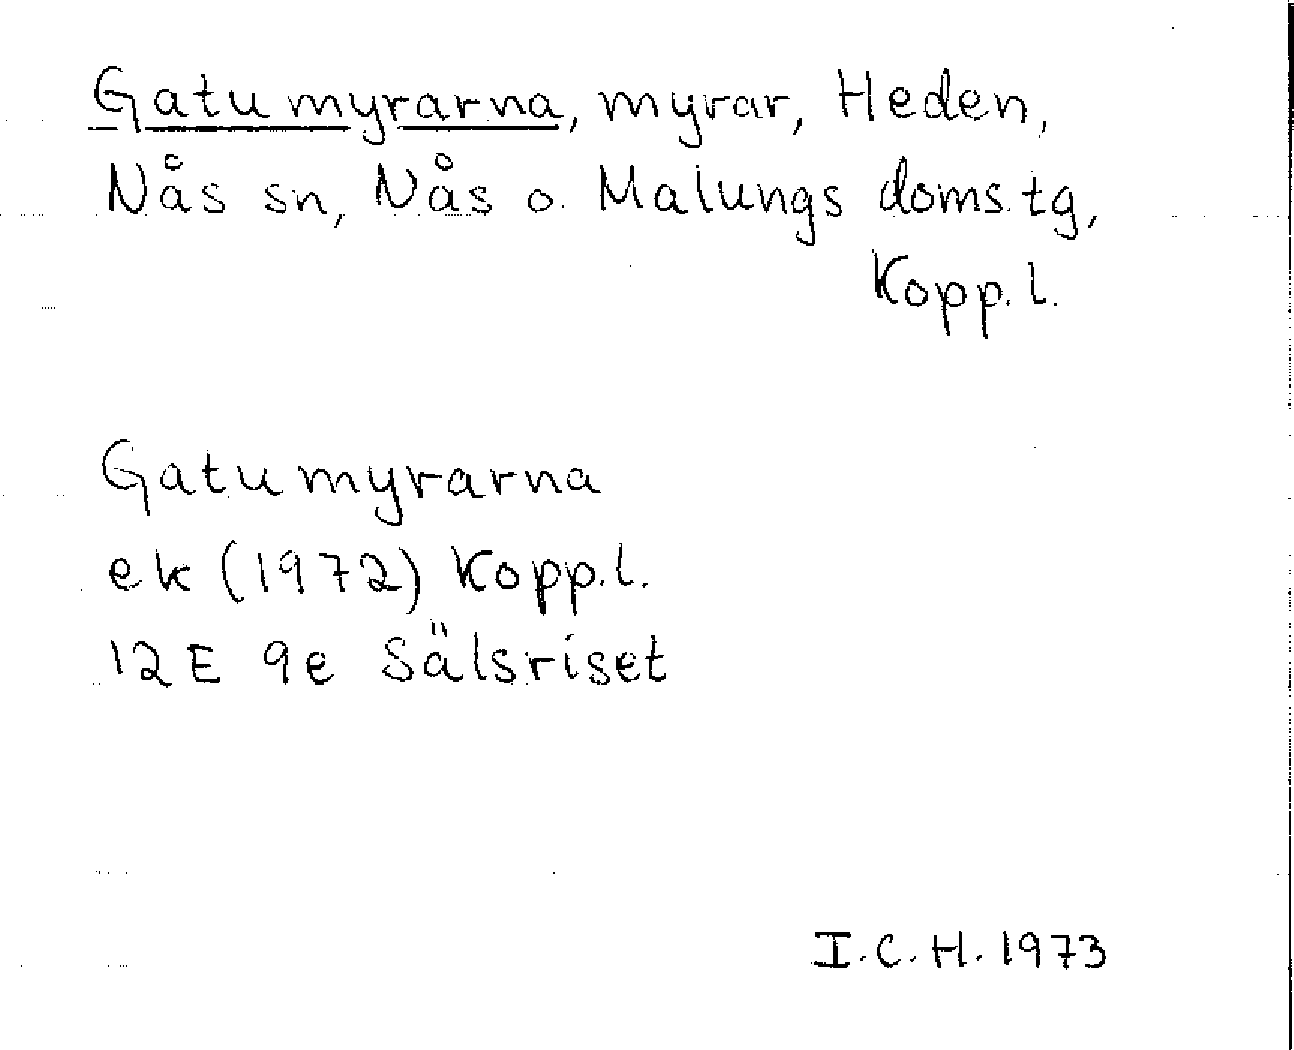 Gatumyrarna, myrar, Heden,
Nås sn, Nås o. Malungs doms.tg,
Kopp.l.
Gatumyrarna
ek (1972) Kopp.l.
12E 9e Sälsriset
I.C.H. 1973